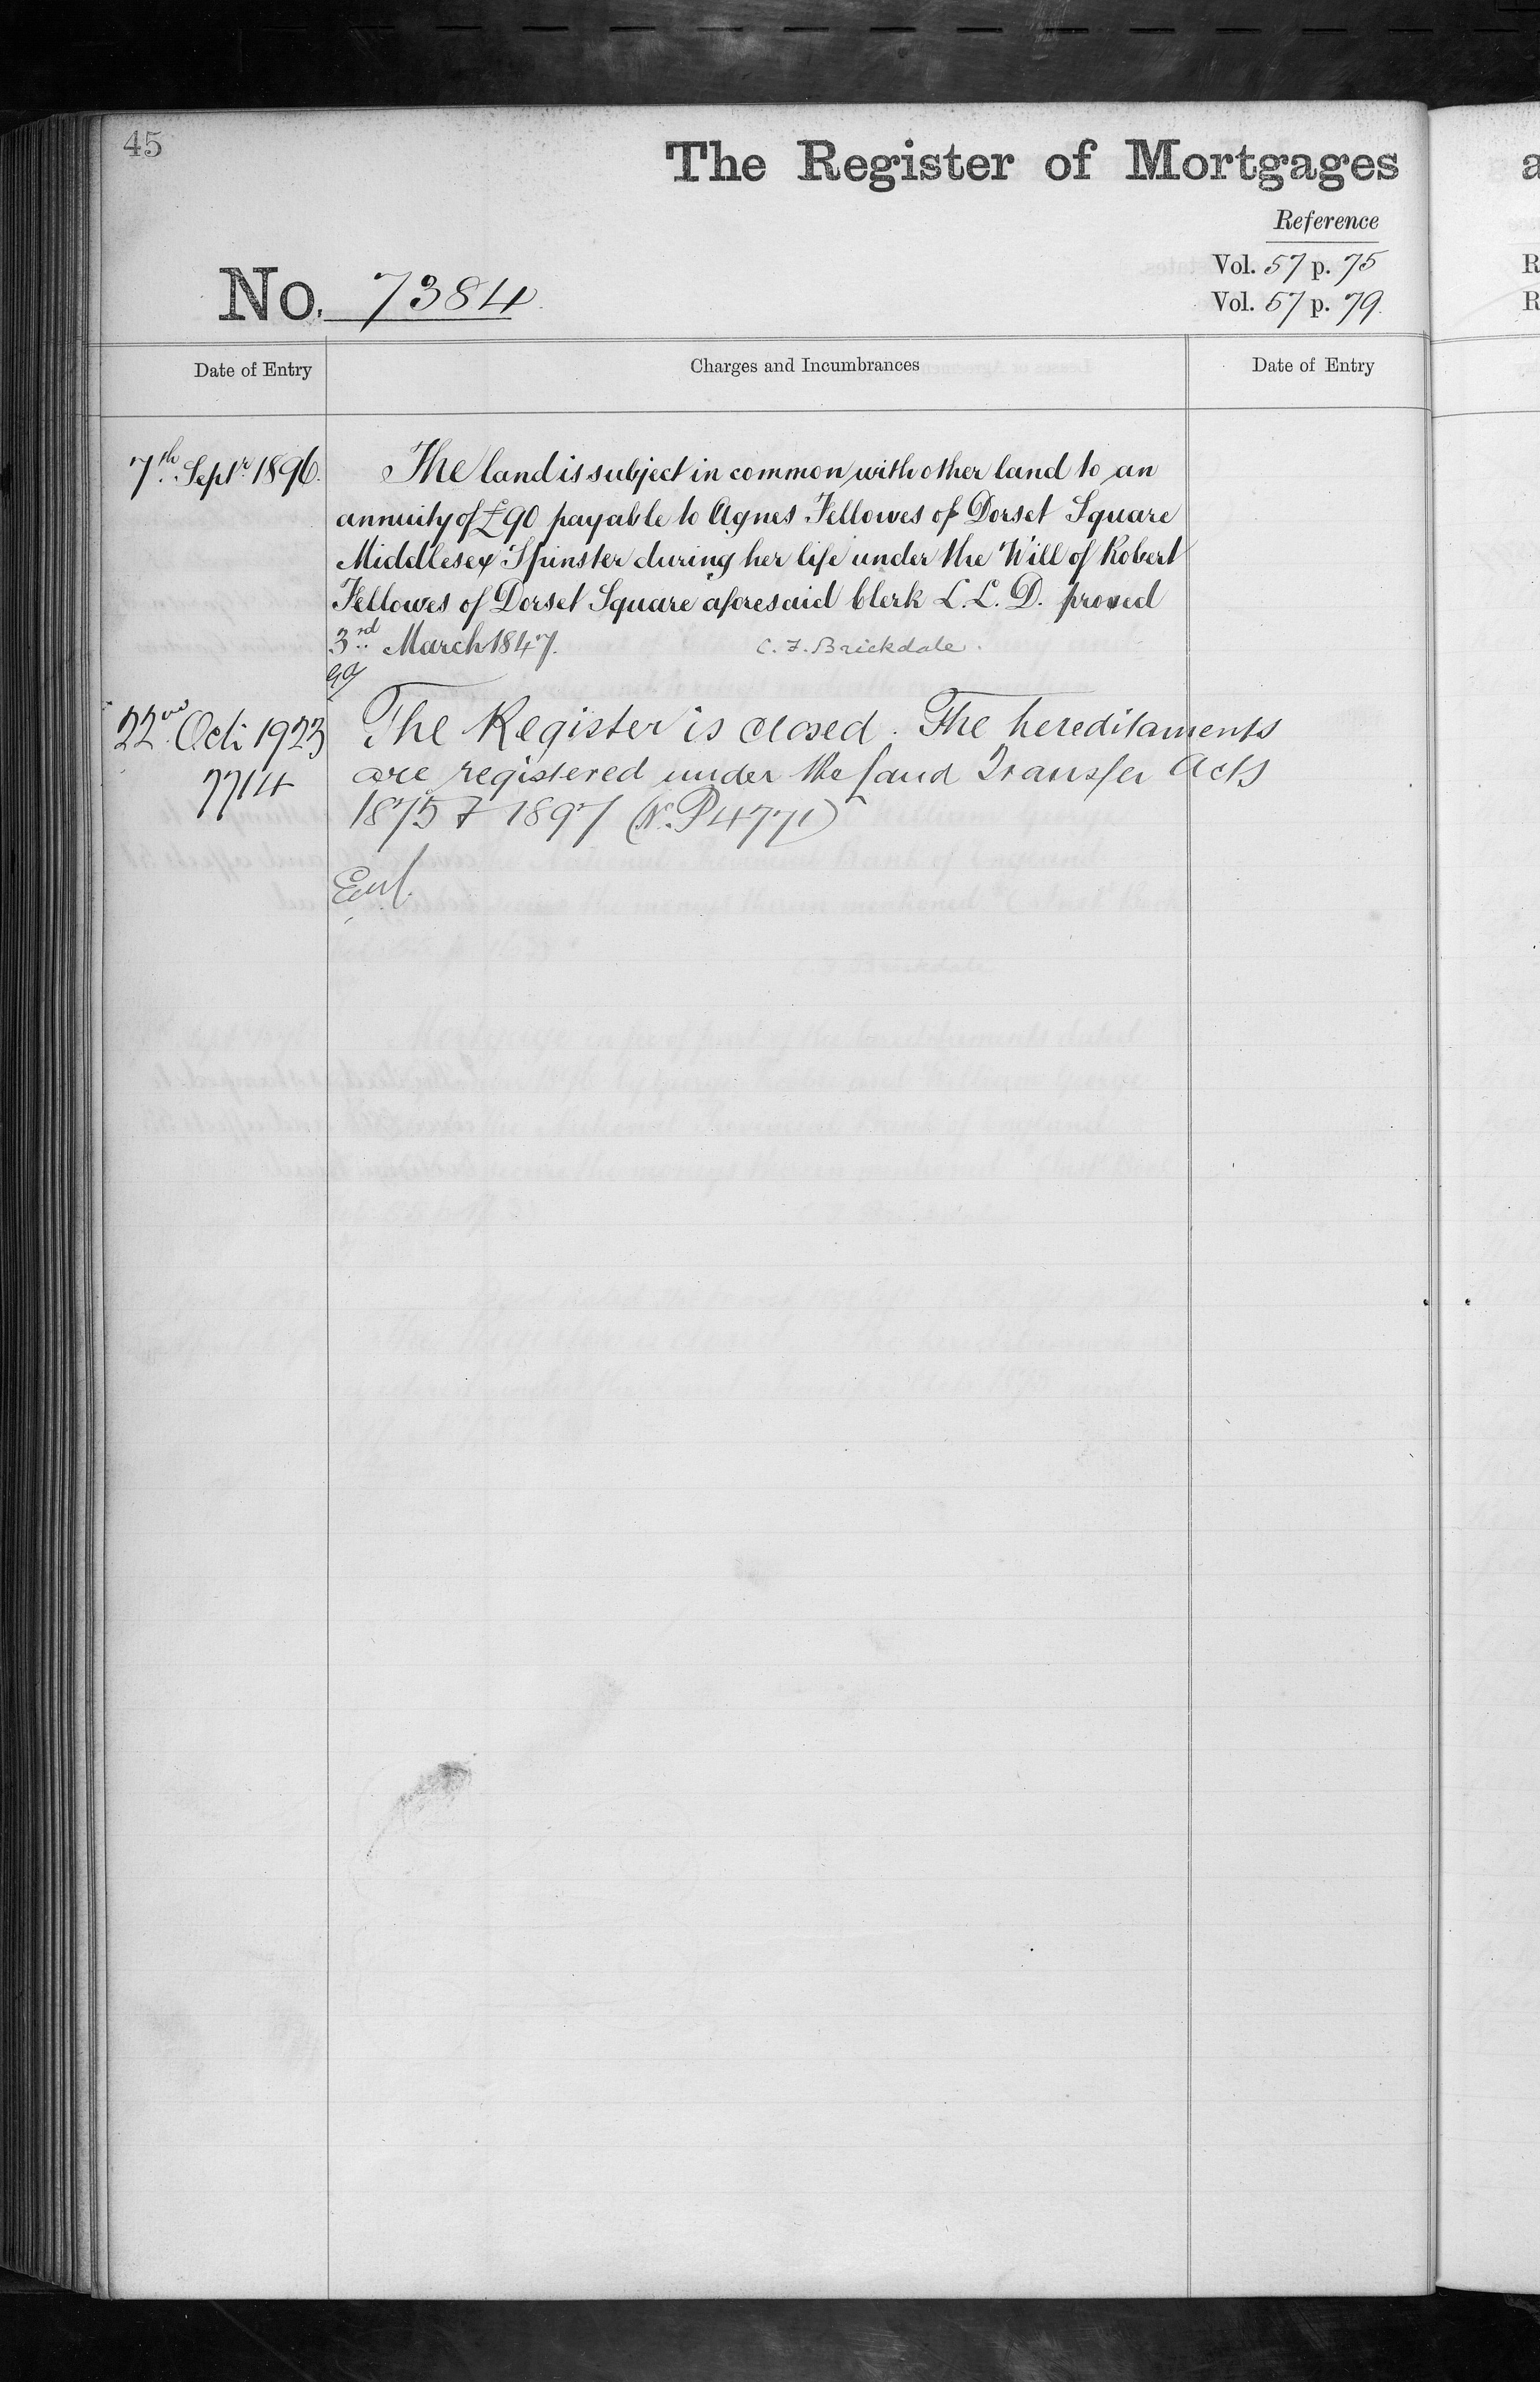 45
The Register of Mortgages
Reference
Vol. 57 p. 75
Vol. 57 p. 79.
No. 7384
Date of Entry
Charges and Incumbrances
Date of Entry
7th. Septr. 1896.
The land is subject in common with other land to an
annuity of £90 payable to Agnes Fellowes of Dorset Square
Middlesex Spinster during her life under the Will of Robert
Fellowes of Dorset Square aforesaid Clerk L. L. D. proved
3rd March 1847.
C. F. Brickdale.
22nd. Oct: 1923
7714
The Register is closed. The hereditaments
are registered under the Land Transfer Acts
1875 & 1897 (No. P4771)
a
R
R